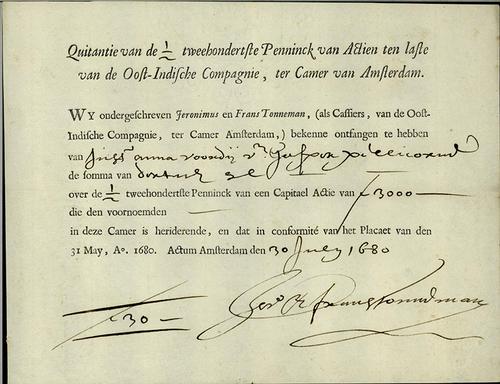 Quitantie van de ½ tweehondertste Penninck van Actien ten laste
van de Oost-Indische Compagnie, ter Camer van Amsterdam.
WY ondergeschreven Jeronimus en Frans Tonneman, (als Cassiers, van de Oost-
Indische Compagnie, ter Camer Amsterdam,) bekenne ontfangen te hebben
van anna
de somma van dertich
over de ½ tweehondertste Penninck van een Capitael Actie van ƒ3000
die den voornoemden
in deze Camer is heriderende, en dat in conformité van het Placaet van den
31 May, Aº. 1680. Actum Amsterdam den 30 July 1680
ƒ30
Jerº & frans tonneman